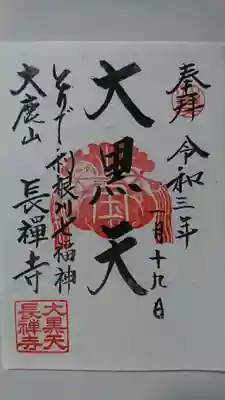 奉拝
令和三年
一月十九日
大黒天
とりで利根川七福神
大鹿山
長禅寺
大黒天
長禅寺